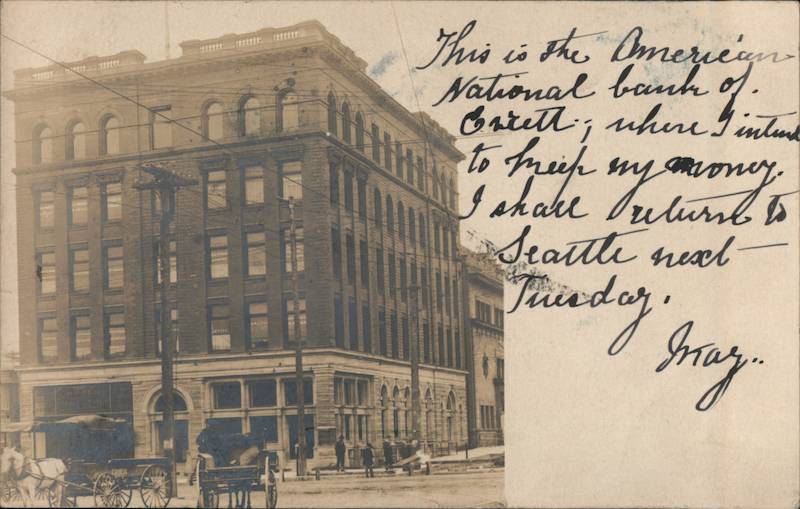 This is the American
National bank of.
Everett; where I intend
to keep my money.
I shall return to
Seattle next
Tuesday.
May..